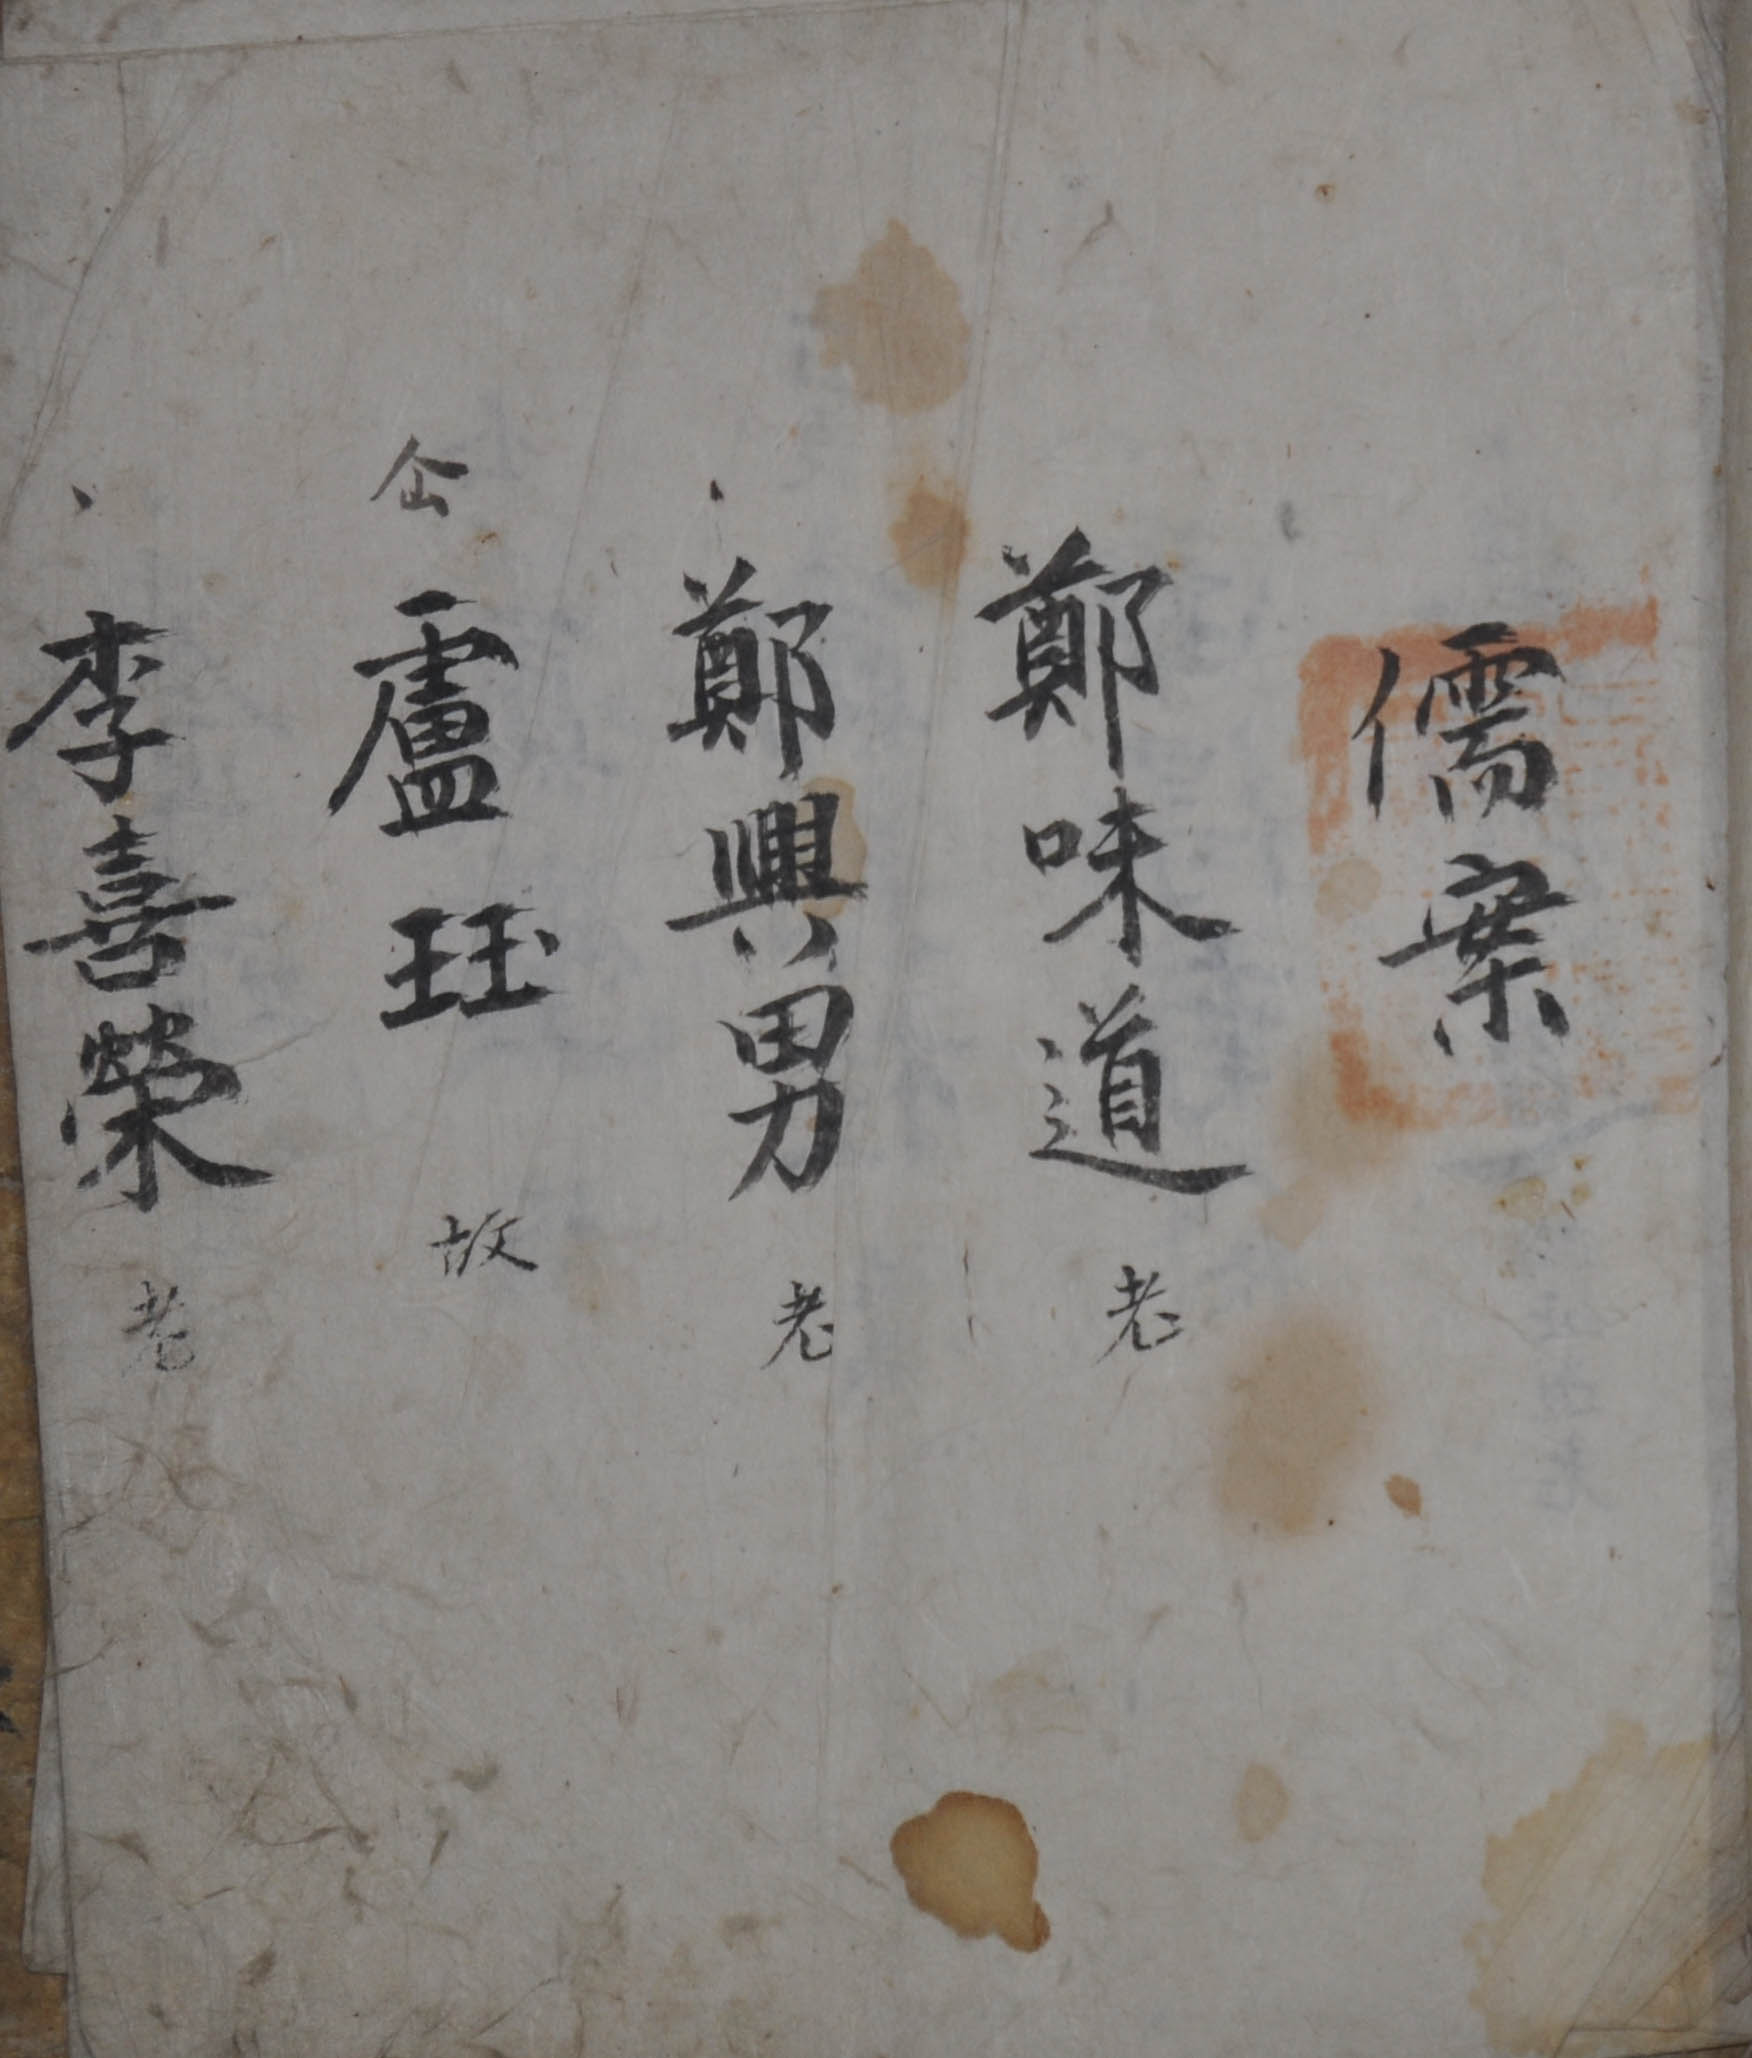 儒案
鄭味道 老
鄭興男 老
仚 盧珏 故
李喜榮 老